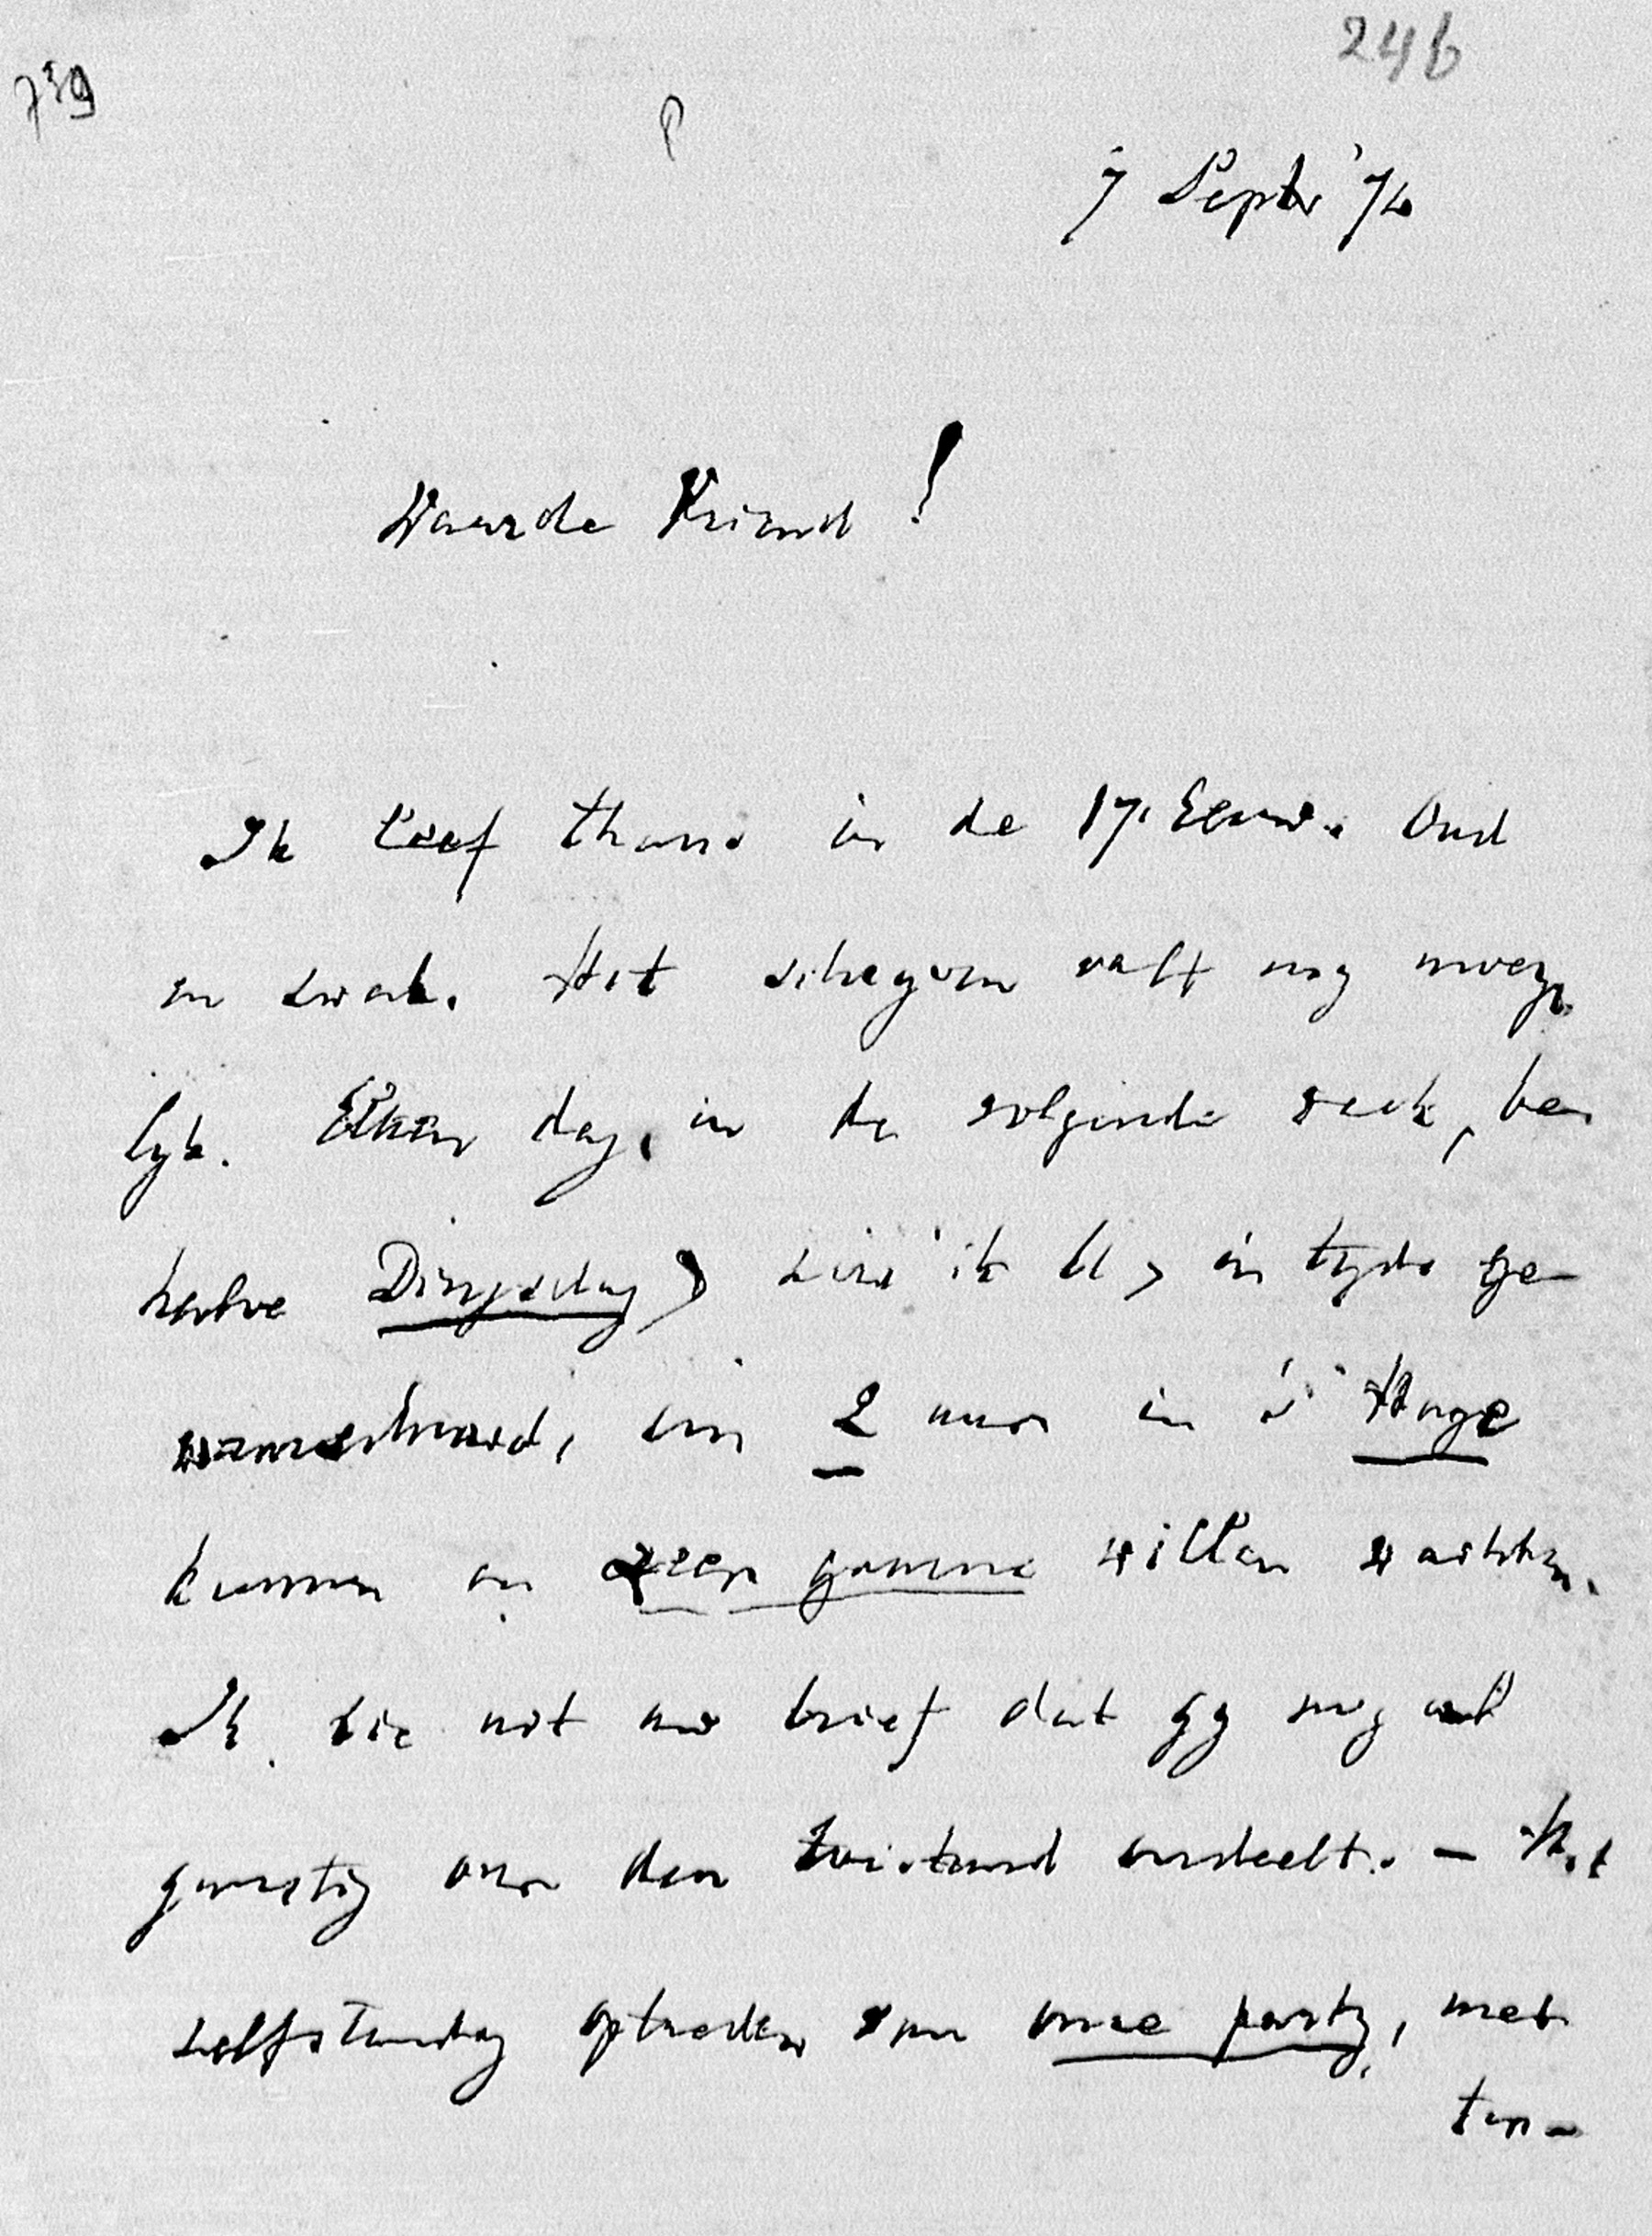 246
739
P
7 Septr '74
Waarde Vriend!
Ik leef thans in de 17e Eeuw. Oud
en zwak. Het schryven valt nog moey-
lyk. Elken dag, in de volgende week, be-
halve Dingsdag) zou ik U, in tyds ge-
waarschuwd, om 2 uur in 's Hage
kunnen en zeer gaarne willen wachten.
Ik zie uit uw brief dat gy nog al
gunstig over den toestand oordeelt. — Het
zelfstandig optreden van onze party, met
ten-